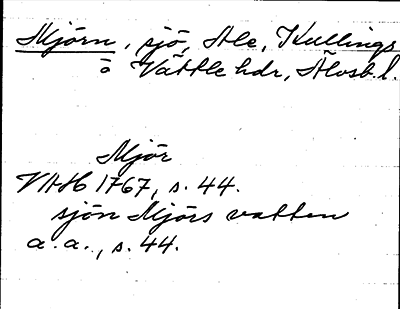 Mjörn, sjö, Ale, Kullings
o Vättle hdr, Älvsb. l.
Mjör
VAH 1767, s. 44.
sjön Mjörs vatten
a. a., s. 44.